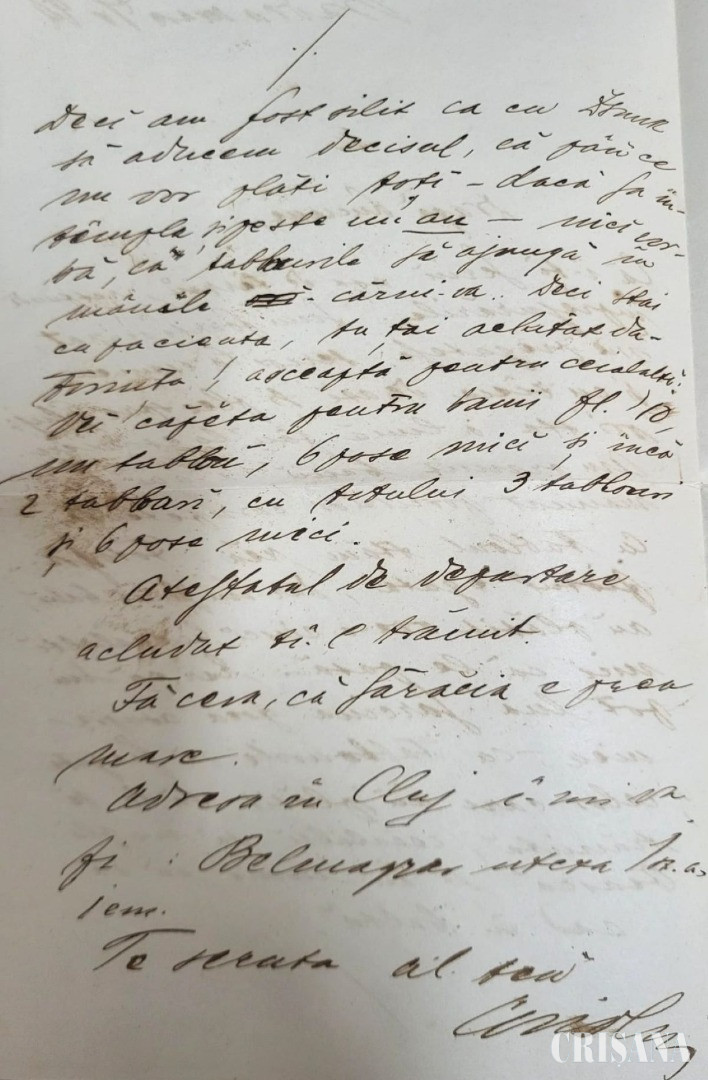 ./.
Deci am fost silit ca cu
să aducem decisul, că pân ce
nu vor plăti toti – dacă sa în-
templa și peste un an – nici vor-
bă, că tabbourile să ajungă în
mânile cărui-va. Deci stai
cu pacienta, tu ți-ai achitat da-
torința, asceaptă pentru ceialalți.
Vei căpăta pentru banii fl. 10,
un tabbou, 6 pose mici, și încă
2 tabbouri, cu totului 3 tablouri
și 6 pose mici.
Atestatul de departare
acludat ți-l trămit.
Fă ceva, că sărăcia e prea
mare.
Adresa în Cluj î-mi va
fi : utcza 1 sz. a.
iem.
Te seruta al teu
CRIȘANA